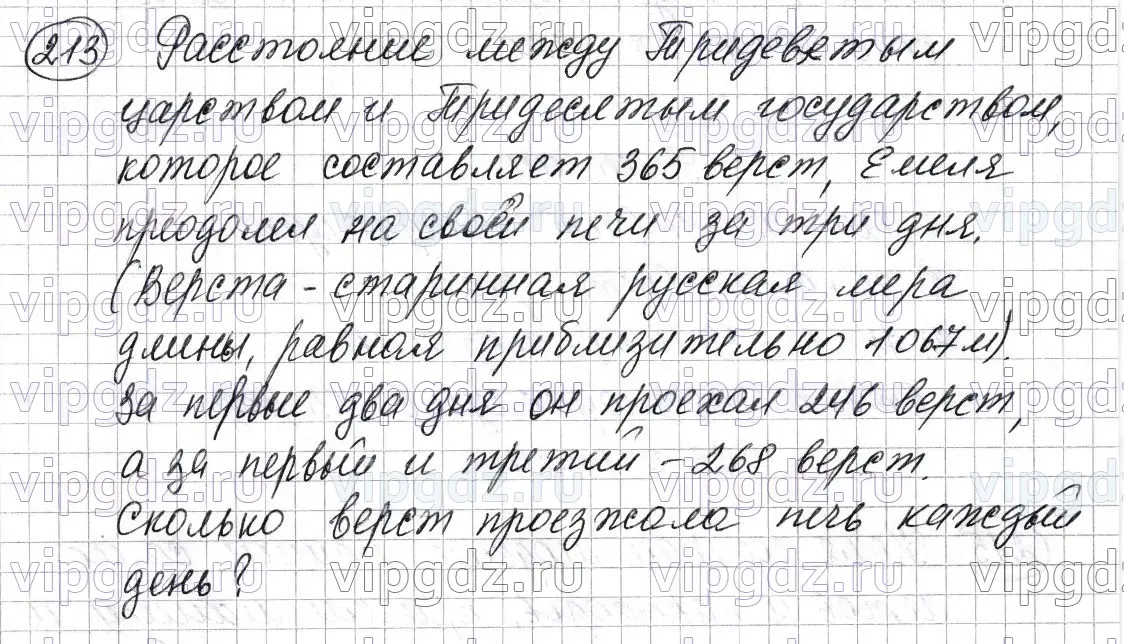 213 Расстояние между Тридевятым
царством и Тридесятым государством,
которое составляет 365 верст, Емеля
преодолел на своей печи за три дня.
(Верста - старинная русская мера
длины, равная приблизительно 1067м).
За первые два дня он проехал 246 верст,
а за первый и третий - 268 верст.
Сколько верст проезжала печь каждый
день?